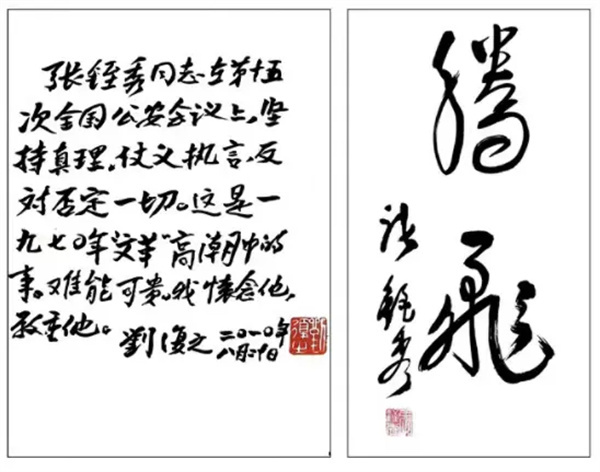 张铚秀同志在第十五
次全国公安会议上,坚
持真理,仗义执言,反
对否定一切。这是一
九七〇年“文革”高潮时的
事。难能可贵。我怀念他,
敬重他。
劉復之
二〇一〇年
八月二十日
騰飛
张铚秀